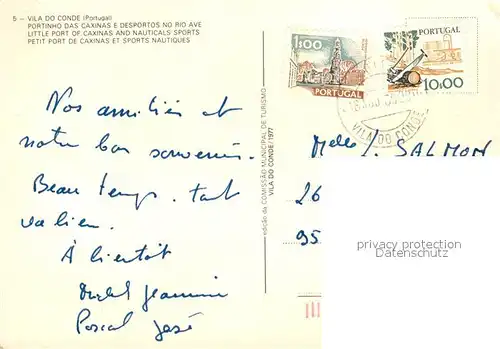 5 - VILA DO CONDE (Portugal)
PORTINHO DAS CAXINAS E DESPORTOS NO RIO AVE
LITTLE PORT OF CAXINAS AND NAUTICALS SPORTS
PETIT PORT DE CAXINAS ET SPORTS NAUTIQUES
Nos amitiés et
notre bon souvenir.
Beau temps. tout
va bien.
À bientôt
Jeannine
Pascal José
edição da COMISSÃO MUNICIPAL DE TURISMO
VILA DO CONDE/1977
1$00
PORTUGAL
PORTUGAL
10$00
VILA DO CONDE
Melle J. SALMON
26
95
privacy protection